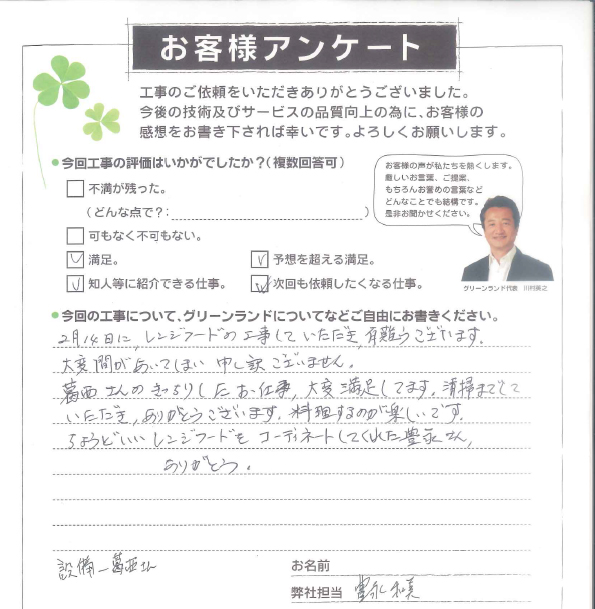 お客様アンケート
工事のご依頼をいただきありがとうございました。
今後の技術及びサービスの品質向上の為に、お客様の
感想をお書き下されば幸いです。よろしくお願いします。
●今回工事の評価はいかがでしたか？(複数回答可)
不満が残った。
(どんな点で？:                    )
可もなく不可もない。
満足。
予想を超える満足。
知人等に紹介できる仕事。
次回も依頼したくなる仕事。
お客様の声が私たちを熱くします。
厳しいお言葉、ご提案、
もちろんお誉めの言葉など
どんなことでも結構です。
是非お聞かせください。
グリーンランド代表 川村
●今回の工事について、グリーンランドについてなどご自由にお書きください。
2月14日に、レンジフードの工事して いただき 有難うございます。
大変 間が あいてしまい 申し訳 ございません。
葛西 さんの きっちりした お仕事、大変 満足してます。清掃までして
いただき、ありがとうございます。料理するのが楽しいです。
ちょうどいい レンジフードを コーディネートしてくれた 豊永さん、
ありがとう。
設備 葛西さん
お名前
弊社担当 豊永 和真